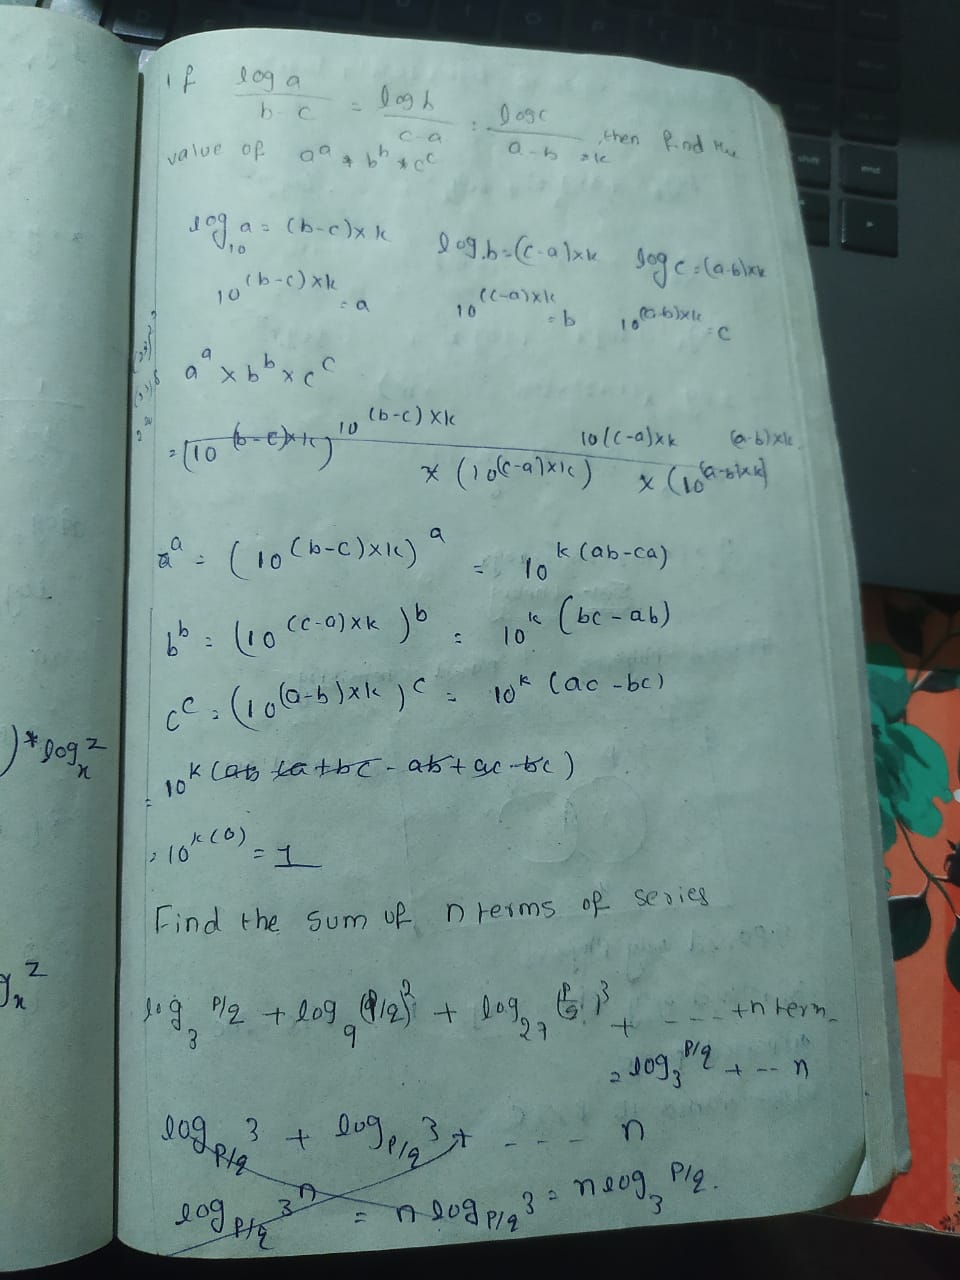 )* log_x^z
g_x^z
If log a / b - c = log b / c - a = log c / a - b = k, then find the
value of a^a * b^b * c^c
log_10 a = (b-c)×k log b = (c-a)×k log c = (a-b)×k
10^(b-c)×k = a 10^(c-a)×k = b 10^(a-b)×k = c
a^a × b^b × c^c
= (10^(b-c)×k)^10^(b-c)×k × (10^(c-a)×k)^10^(c-a)×k × (10^(a-b)×k)^(a-b)×k
a^a = (10^(b-c)×k)^a = 10^k(ab-ca)
b^b = (10^(c-a)×k)^b = 10^k(bc-ab)
c^c = (10^(a-b)×k)^c = 10^k(ac-bc)
= 10^k(ab-ca+bc-ab+ac-bc)
= 10^k(0) = 1
Find the sum of n terms of series
log_3 P/q + log_9 (P/q)^2 + log_27 (P/q)^3 + - - - - + n term
= log_3 P/q + -- n
log_P/q 3 + log_P/q 3 + - - - n
log_P/q 3^n = n log_P/q 3 = n log_3 P/q.